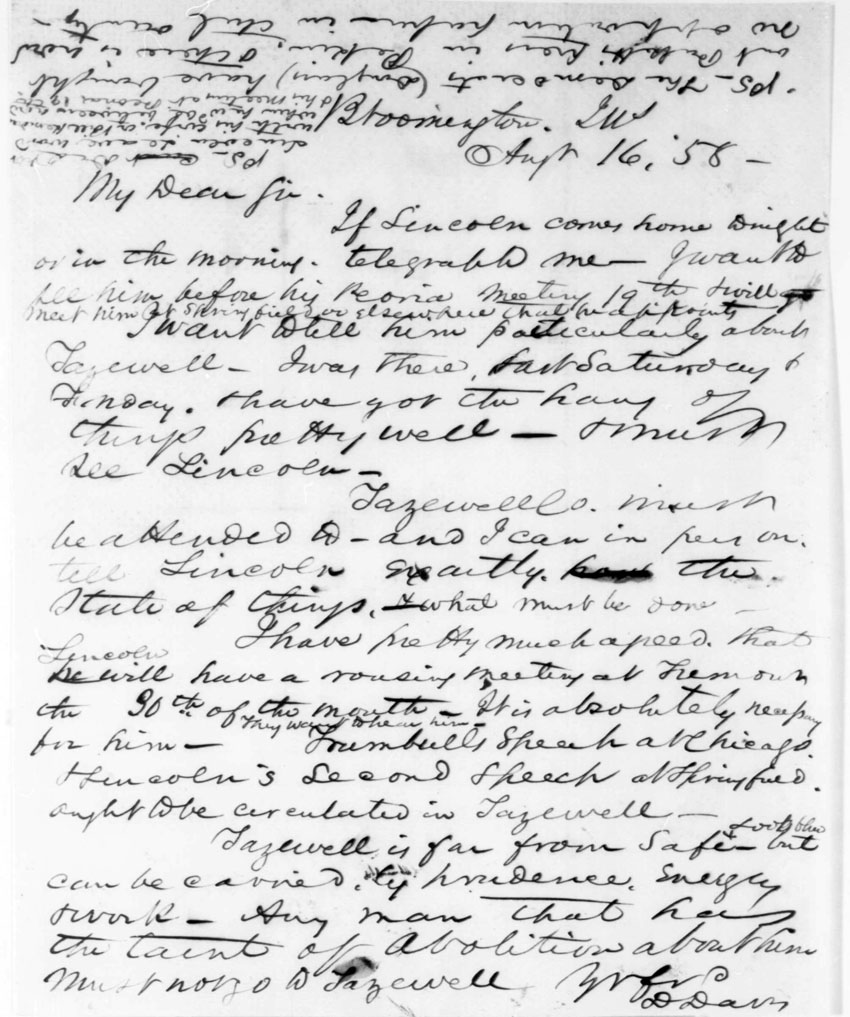 Bloomington. Ills
Augt 16, '58 —
My Dear Sir.
If Lincoln comes home to night
or in the morning. telegraph me — I want to
see him before his Peoria meeting 19th & will go
meet him at Springfield or elsewhere that he appoints
I want to tell him particularly about
Tazewell — I was there, last Saturday &
Sunday. I have got the hang of
things pretty well — & must
see Lincoln —
Tazewell Co. must
be attended to — and I can in person.
tell Lincoln exactly. how the
State of things, & what must be done —
I have pretty much agreed. that
Lincoln
he will have a rousing meeting at Tremont
the 30th of the month — It is absolutely necessary
They want to hear him —
for him — Trumbull's Speech at Chicago.
& Lincoln's Second Speech at Springfield.
ought to be circulated in Tazewell —
Tazewell is far from Safe — but
can be carried, by prudence. Energy
& work — Any man that has
the taint of Abolition about him
Must not go to Tazewell Yr fr
D Davis
PS — The Democrats (Douglas) have bought
out press in Pekin, & there is now
no opposition paper — in that county —
PS —